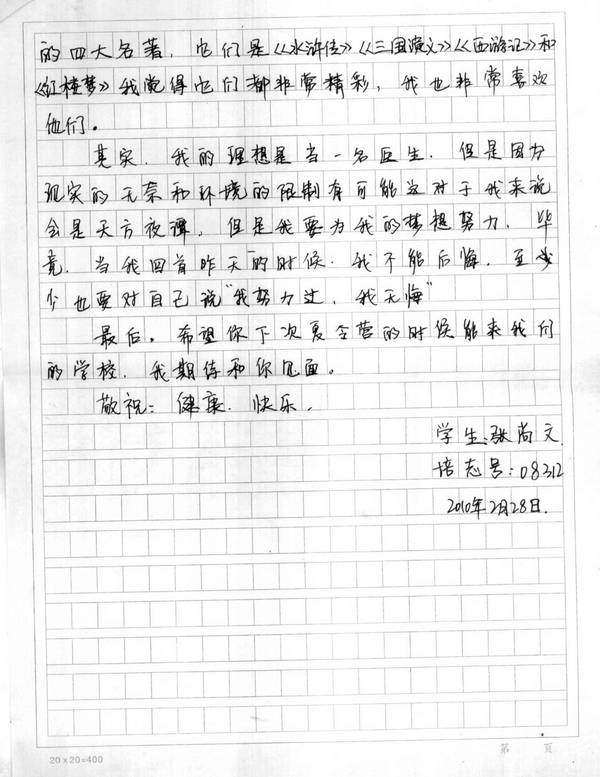 的四大名著，它们是《水浒传》《三国演义》《西游记》和
《红楼梦》我觉得它们都非常精彩，我也非常喜欢
他们。
其实，我的理想是当一名医生，但是因为
现实的无奈和环境的限制有可能这对于我来说
会是天方夜谭，但是我要为我的梦想努力，毕
竟，当我回首昨天的时候，我不能后悔，至少
少也要对自己说“我努力过，我无悔”
最后，希望你下次夏令营的时候能来我们
的学校，我期待和你见面。
敬祝：健康，快乐，
学生：张尚文
培志号：08312
2010年2月28日.
第 页
20×20=400